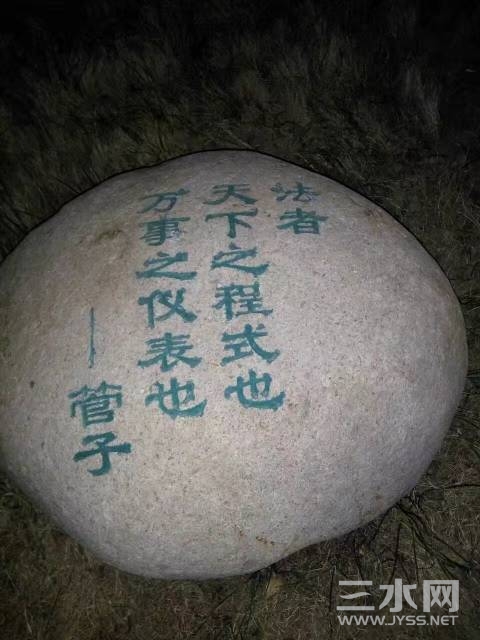 法者
天下之程式也
万事之仪表也
——管子
三水网
WWW.JYSS.NET